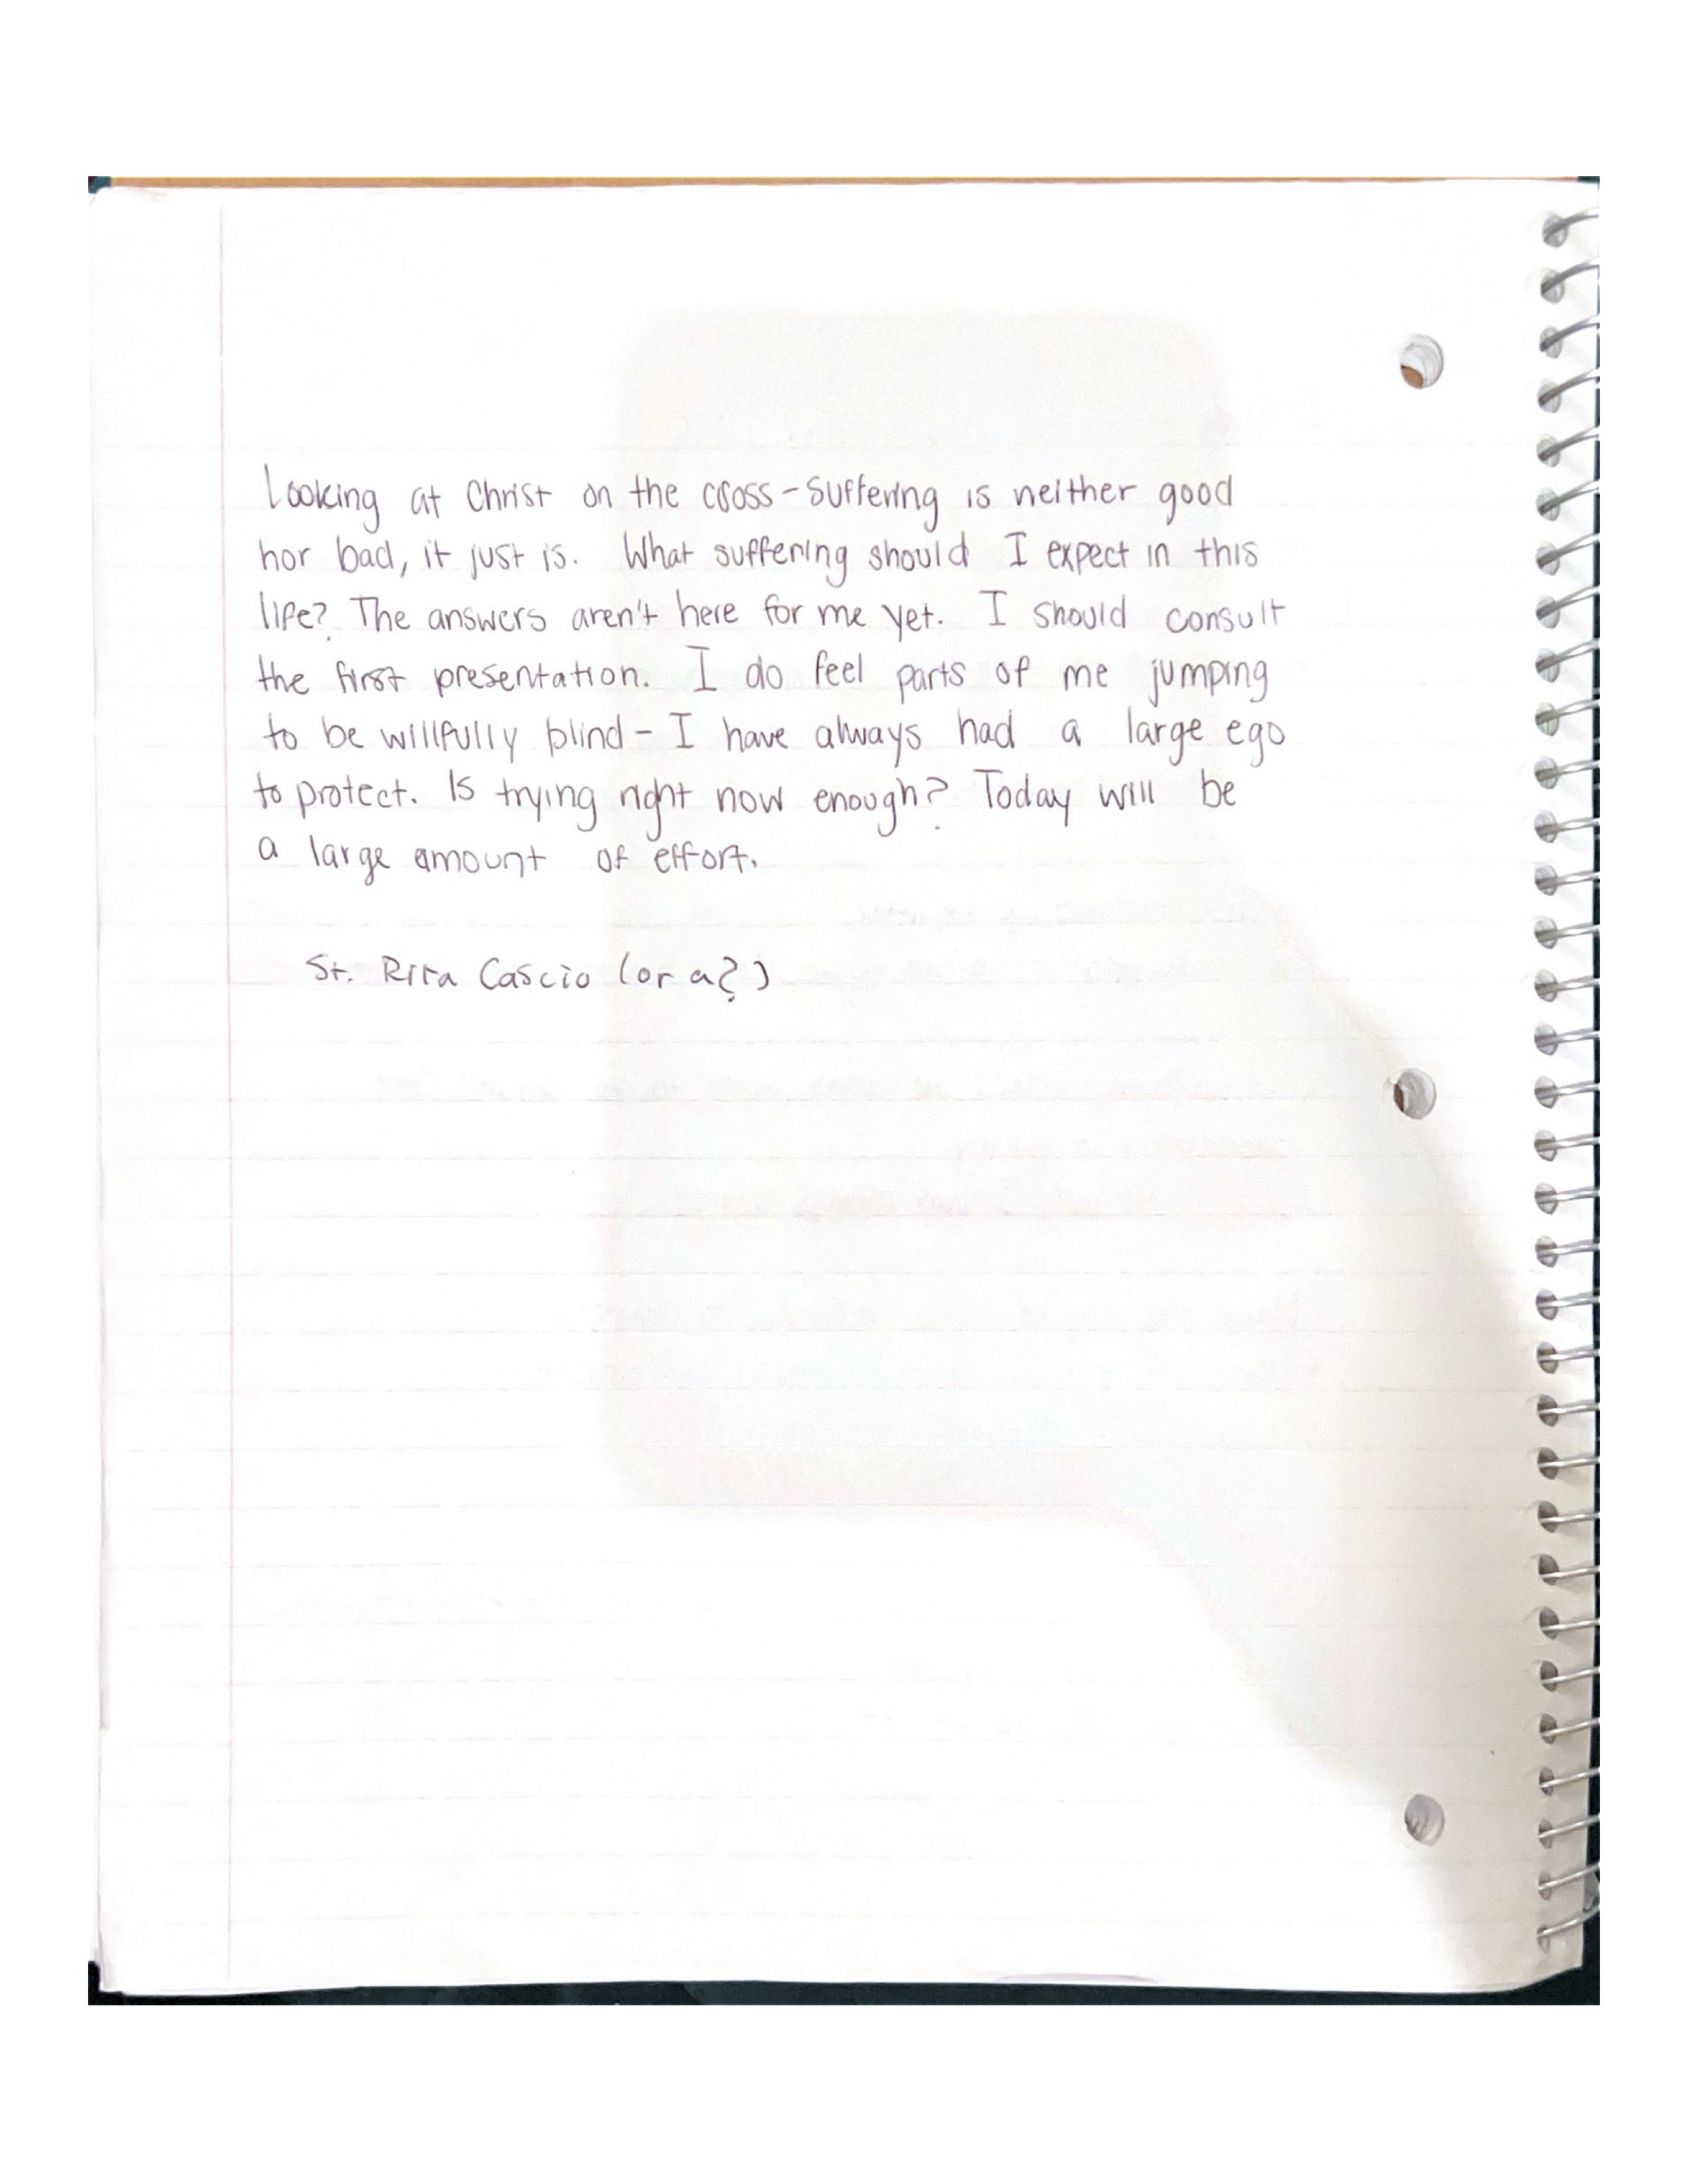 Looking at Christ on the cross - suffering is neither good
nor bad, it just is. What suffering should I expect in this
life? The answers aren't here for me yet. I should consult
the first presentation. I do feel parts of me jumping
to be willfully blind - I have always had a large ego
to protect. Is trying right now enough? Today will be
a large amount of effort.
St. Rita Cascio (or a?)